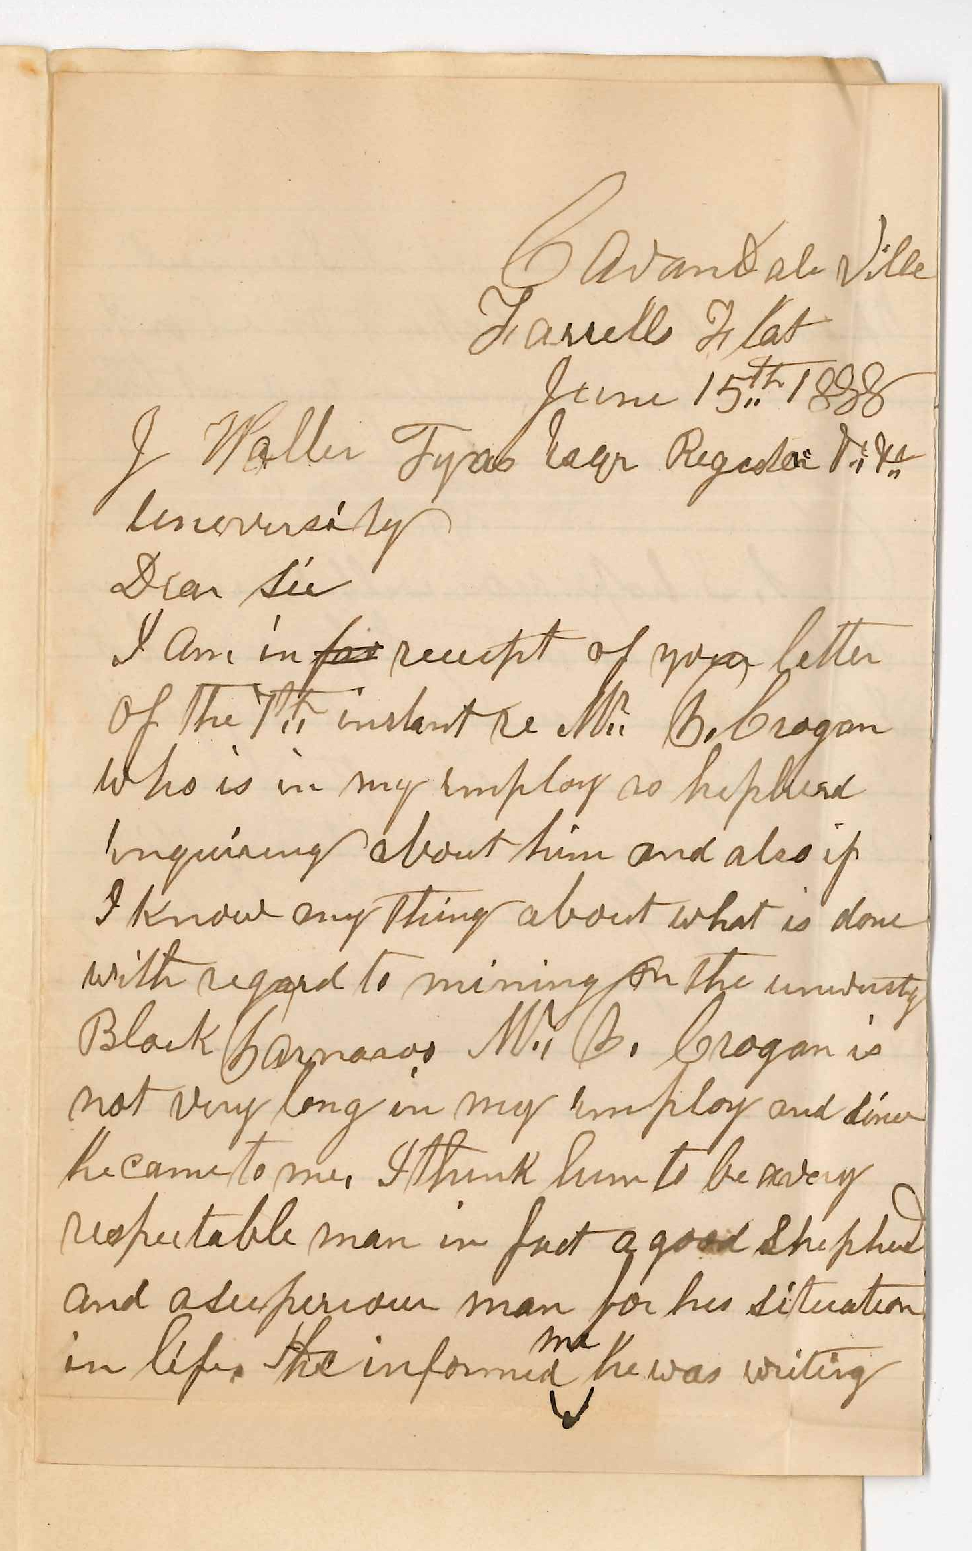 Cavandale Ville
Farrells Flat
June 15th 1888
J Walter Tyas Esqr Register
University
Dear Sir
I am in for receipt of your letter
of the 7th instant re Mr. B. Crogan
who is in my employ as hepherd
Enquiring about him and also if
I know any thing about what is done
with regard to mining on the university
Block Mr. B. Crogan is
not very long in my employ and since
he came to me, I think him to be a very
respectable man in fact a good Shepherd
and a superiour man for his situation
in life, he informed me he was writing